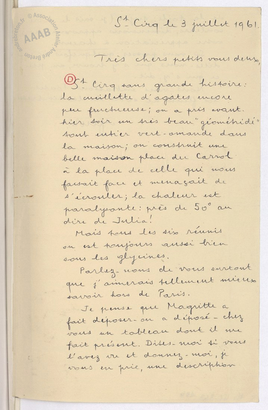 St Cirq le 3 juillet 1961.
AAAB
Très chers petits vous deux,
St Cirq sans grande histoire:
la cueillette d'agates encore
peu fructueuse; on a pris avant
hier soir un très beau "géométridé"
tout entier vert-amande dans
la maison; on construit une
belle maison place du Carrol
à la place de celle qui nous
faisait face et menaçait de
s'écrouler; la chaleur est
paralysante: près de 50° au
dire de Julio!
Mais tous les six réunis
on est toujours aussi bien
sous les glycines.
Parlez-nous de vous surtout
que j'aimerais tellement mieux
savoir hors de Paris.
Je pense que Magritte a
fait déposer - ou a déposé - chez
vous un tableau dont il me
fait présent. Dites-moi si vous
l'avez vu et donnez-moi, je
vous en prie, une description